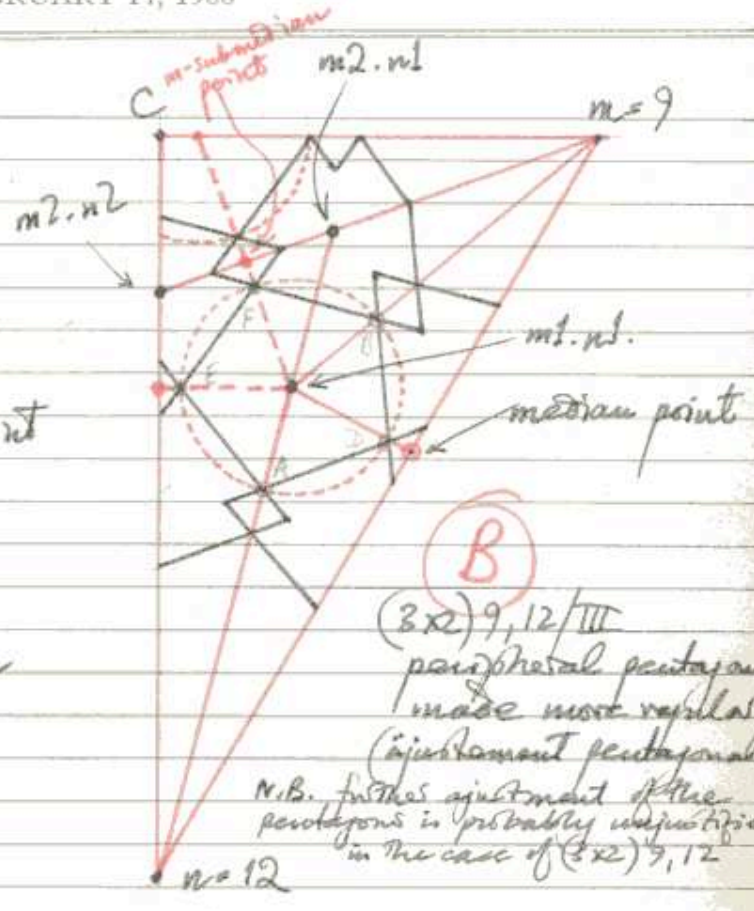 m-submedian
points
m2.n1
C
m=9
m2.n2
F
B
m1.n1.
E
median point
nt
D
A
B
(3x2)9,12/III
peripheral pentagon
made more regular
(ajustement pentagonal
N.B. further ajustment of the
pentagons is probably unjustifi
in the case of (3x2)9,12
n=12